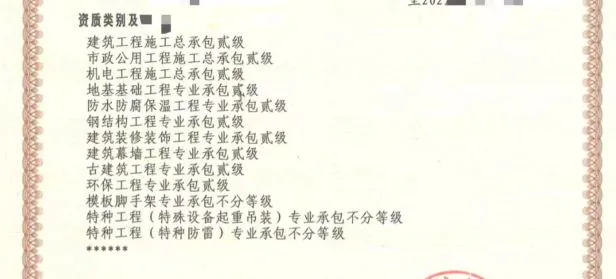 至202
资质类别及
建筑工程施工总承包贰级
市政公用工程施工总承包贰级
机电工程施工总承包贰级
地基基础工程专业承包贰级
防水防腐保温工程专业承包贰级
钢结构工程专业承包贰级
建筑装修装饰工程专业承包贰级
建筑幕墙工程专业承包贰级
古建筑工程专业承包贰级
环保工程专业承包贰级
模板脚手架专业承包不分等级
特种工程（特殊设备起重吊装）专业承包不分等级
特种工程（特种防雷）专业承包不分等级
******